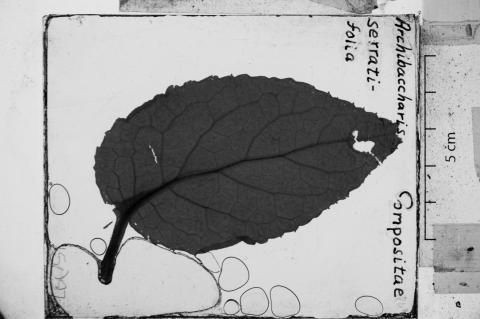 Archibaccharis
serrati-
folia
Compositae
5 cm